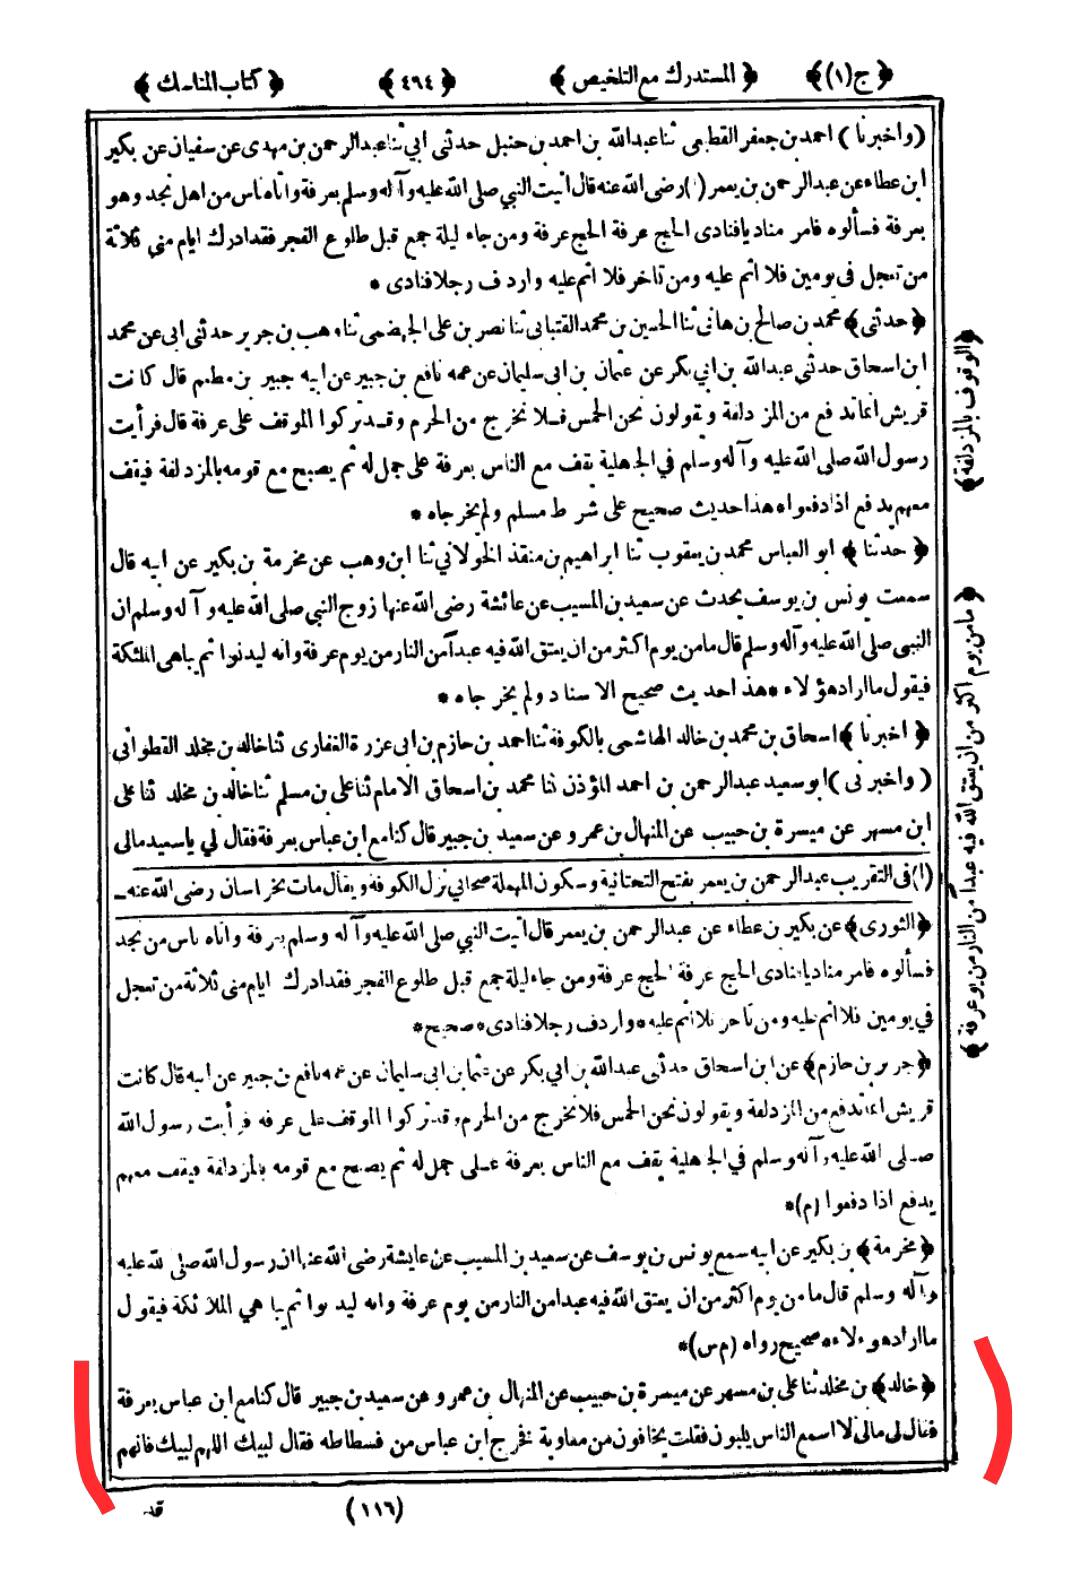 ﴿ ج (١) ﴾ ﴿ المستدرك مع التلخيص ﴾ ﴿ ٤٦٤ ﴾ ﴿ كتاب المناسك ﴾
( واخبرنا ) احمد بن جعفر القطيعى ثنا عبد الله بن احمد بن حنبل حدثنى ابي ثنا عبد الرحمن بن مهدى عن سفيان عن بكير
ابن عطاء عن عبد الرحمن بن يعمر (١) رضى الله عنه قال اتيت النبي صلى الله عليه وآله وسلم بعرفة واتاه ناس من اهل نجد وهو
بعرفة فسألوه فامر مناديا فنادى الحج عرفة الحج عرفة ومن جاء ليلة جمع قبل طلوع الفجر فقد ادرك ايام منى ثلاثة
من تعجل فى يومين فلا اثم عليه ومن تاخر فلا اثم عليه واردف رجلا فنادى *
﴿ حدثنى ﴾ محمد بن صالح بن هانى ثنا الحسين بن محمد القتبابى ثنا نصر بن على الجهضمى ثنا وهب بن جرير حدثنى ابى عن محمد
ابن اسحاق حدثنى عبد الله بن ابي بكر عن عثمان بن ابى سليمان عن عمه نافع بن جبير عن ابيه جبير بن مطعم قال كانت
قريش انما تدفع من المزدلفة وتقولون نحن الحمس فلا نخرج من الحرم وقد تركوا الموقف على عرفة قال فرأيت
رسول الله صلى الله عليه وآله وسلم في الجاهلية يقف مع الناس بعرفة على جمل له ثم يصبح مع قومه بالمزدلفة فيقف
معهم يدفع اذا دفعوا ه هذا حديث صحيح على شرط مسلم ولم يخرجاه *
﴿ حدثنا ﴾ ابو العباس محمد بن يعقوب ثنا ابراهيم بن منقذ الخولاني ثنا ابن وهب عن مخرمة بن بكير عن ابيه قال
سمعت يونس بن يوسف يحدث عن سعيد بن المسيب عن عائشة رضى الله عنها زوج النبي صلى الله عليه وآله وسلم ان
النبى صلى الله عليه وآله وسلم قال ما من يوم اكثر من ان يعتق الله فيه عبدا من النار من يوم عرفة وانه ليدنوا ثم يباهى الملئكة
فيقول ما اراد هؤلاء * هذا حديث صحيح الاسناد ولم يخرجاه *
﴿ اخبرنا ﴾ اسحاق بن محمد بن خالد الهاشمى بالكوفة ثنا احمد بن حازم بن ابى عزرة الغفارى ثنا خالد بن مخلد القطوانى
( واخبرنى ) ابو سعيد عبد الرحمن بن احمد المؤذن ثنا محمد بن اسحاق الامام ثنا على بن مسلم ثنا خالد بن مخلد ثنا على
ابن مسهر عن ميسرة بن حبيب عن المنهال بن عمرو عن سعيد بن جبير قال كنا مع ابن عباس بعرفة فقال لي يا سعيد مالى
(١) فى التقريب عبد الرحمن بن يعمر بفتح التحتانية وسكون المهملة صحابي نزل الكوفة ويقال مات بخراسان رضى الله عنه ــ
﴿ الثورى ﴾ عن بكير بن عطاء عن عبد الرحمن بن يعمر قال أتيت النبي صلى الله عليه وآله وسلم بعرفة واتاه ناس من نجد
فسألوه فامر مناديا فنادى الحج عرفة الحج عرفة ومن جاء ليلة جمع قبل طلوع الفجر فقد ادرك ايام منى ثلاثة من تعجل
في يومين فلا اثم عليه ومن تأخر فلا اثم عليه * واردف رجلا فنادى * صحيح *
﴿ جرير بن حازم ﴾ عن ابن اسحاق حدثنى عبد الله بن ابي بكر عن عثمان بن ابى سليمان عن عمه نافع بن جبير عن ابيه قال كانت
قريش انما تدفع من المزدلفة ويقولون نحن الحمس فلا نخرج من الحرم وقد تركوا الموقف على عرفه فرأيت رسول الله
صلى الله عليه وآله وسلم في الجاهلية يقف مع الناس بعرفة على جمل له ثم يصبح مع قومه بالمزدلفة فيقف معهم
يدفع اذا دفعوا (م) *
﴿ مخرمة ﴾ بن بكير عن ابيه سمع يونس بن يوسف عن سعيد بن المسيب عن عايشة رضى الله عنها ان رسول الله صلى الله عليه
وآله وسلم قال ما من يوم اكثر من ان يعتق الله فيه عبدا من النار من يوم عرفة وانه ليدنوا ثم يباهي الملائكة فيقول
ما اراد هؤلاء * صحيح رواه (م س) *
﴿ خالد ﴾ بن مخلد ثنا على بن مسهر عن ميسرة بن حبيب عن المنهال بن عمرو عن سعيد بن جبير قال كنا مع ابن عباس بعرفة
فقال لى مالى لا اسمع الناس يلبون فقلت يخافون من معاوية فخرج ابن عباس من فسطاطه فقال لبيك اللهم لبيك فانهم
(١١٦) قد
﴿ الوقوف بالمزدلفة ﴾
﴿ ما من يوم اكثر من ان يعتق الله فيه عبدا من النار من يوم عرفة ﴾